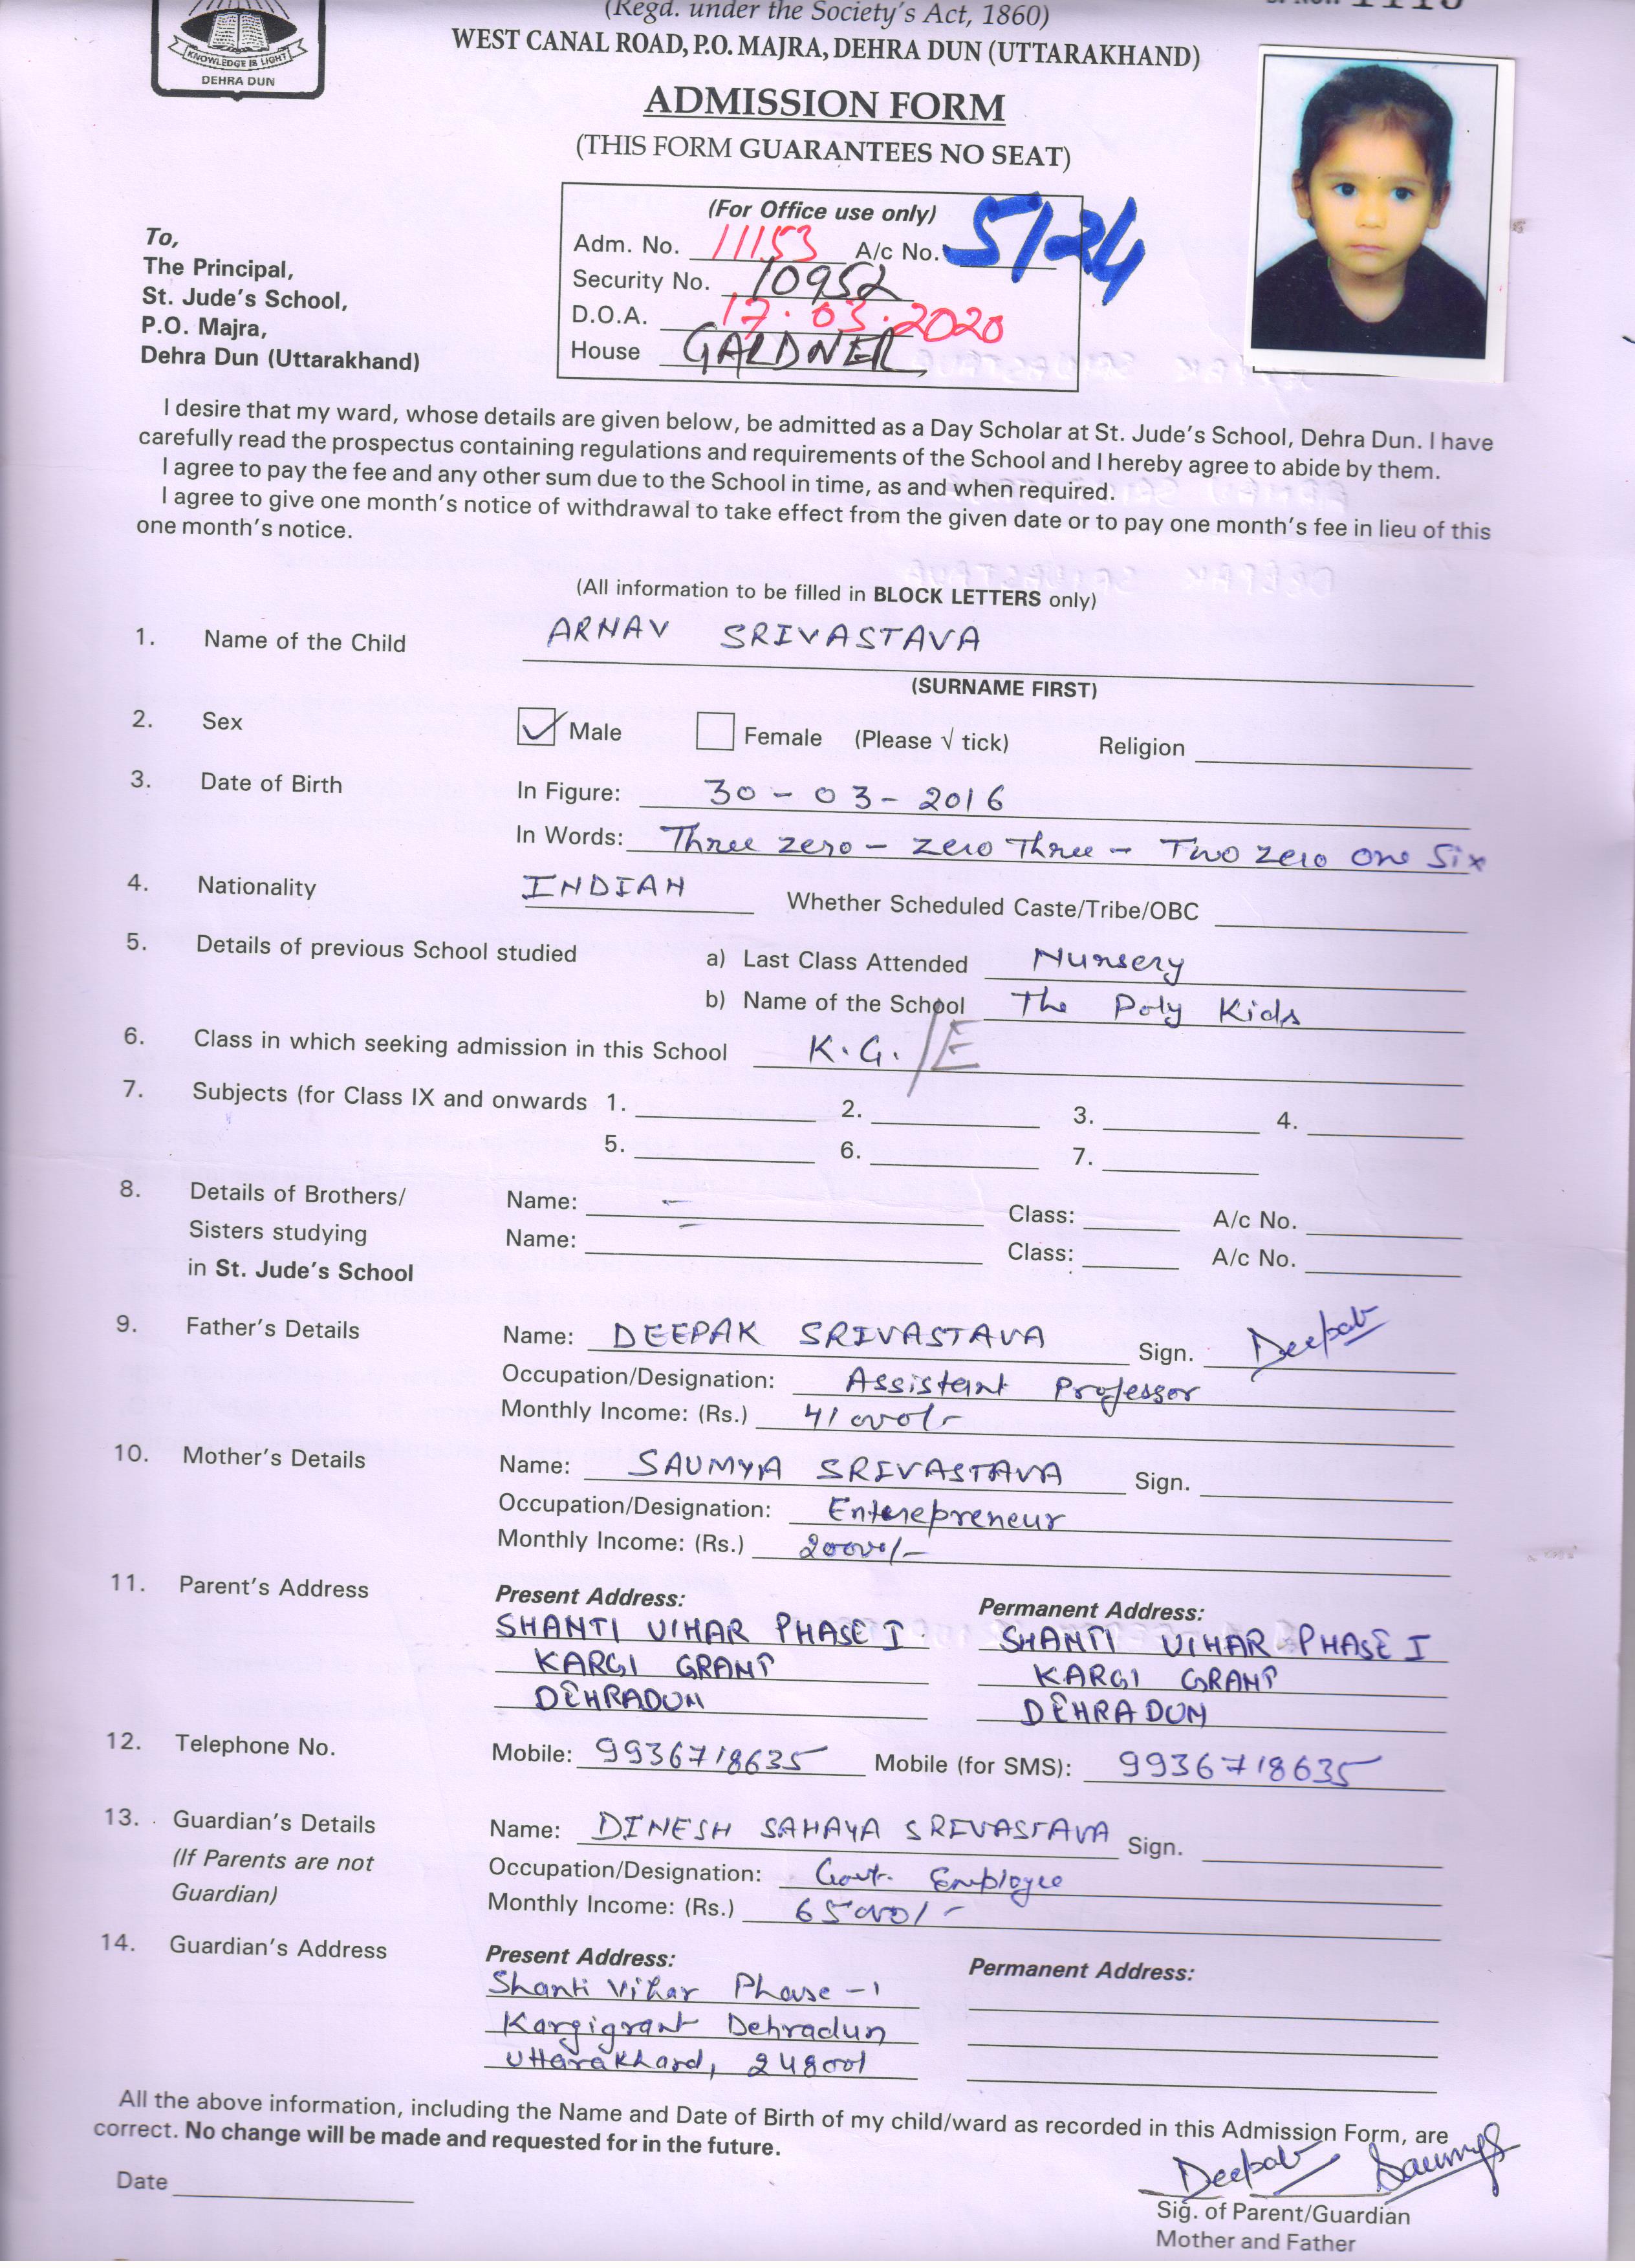 (Regd. under the Society's Act, 1860)
WEST CANAL ROAD, P.O. MAJRA, DEHRA DUN (UTTARAKHAND)
KNOWLEDGE IS LIGHT
DEHRA DUN
ADMISSION FORM
(THIS FORM GUARANTEES NO SEAT)
(For Office use only)
Adm. No. 11153 A/c No. 5124
Security No. 10952
D.O.A. 17.03.2020
House GALDNER
To,
The Principal,
St. Jude's School,
P.O. Majra,
Dehra Dun (Uttarakhand)
I desire that my ward, whose details are given below, be admitted as a Day Scholar at St. Jude's School, Dehra Dun. I have
carefully read the prospectus containing regulations and requirements of the School and I hereby agree to abide by them.
I agree to pay the fee and any other sum due to the School in time, as and when required.
I agree to give one month's notice of withdrawal to take effect from the given date or to pay one month's fee in lieu of this
one month's notice.
(All information to be filled in BLOCK LETTERS only)
1. Name of the Child ARNAV SRIVASTAVA
(SURNAME FIRST)
2. Sex Male Female (Please √ tick) Religion
3. Date of Birth In Figure: 30-03-2016
In Words: Three zero - zero Three - Two zero one Six
4. Nationality INDIAN Whether Scheduled Caste/Tribe/OBC
5. Details of previous School studied a) Last Class Attended Nursery
b) Name of the School The Poly Kids
6. Class in which seeking admission in this School K.G./E
7. Subjects (for Class IX and onwards 1. 2. 3. 4.
5. 6. 7.
8. Details of Brothers/ Name: - Class: A/c No.
Sisters studying Name: Class: A/c No.
in St. Jude's School
9. Father's Details Name: DEEPAK SRIVASTAVA Sign. Deepak
Occupation/Designation: Assistant Professor
Monthly Income: (Rs.) 41000/-
10. Mother's Details Name: SAUMYA SRIVASTAVA Sign.
Occupation/Designation: Enterepreneur
Monthly Income: (Rs.) 20000/-
11. Parent's Address Present Address: Permanent Address:
SHANTI VIHAR PHASE I SHANTI VIHAR PHASE I
KARGI GRANT KARGI GRANT
DEHRADUN DEHRADUN
12. Telephone No. Mobile: 9936718635 Mobile (for SMS): 9936718635
13. Guardian's Details Name: DINESH SAHAYA SRIVASTAVA Sign.
(If Parents are not Occupation/Designation: Govt. Employee
Guardian) Monthly Income: (Rs.) 65000/-
14. Guardian's Address Present Address: Permanent Address:
Shanti Vihar Phase-1
Kargigrant Dehradun
Uttarakhand, 248001
All the above information, including the Name and Date of Birth of my child/ward as recorded in this Admission Form, are
correct. No change will be made and requested for in the future.
Deepak Saumya
Date
Sig. of Parent/Guardian
Mother and Father